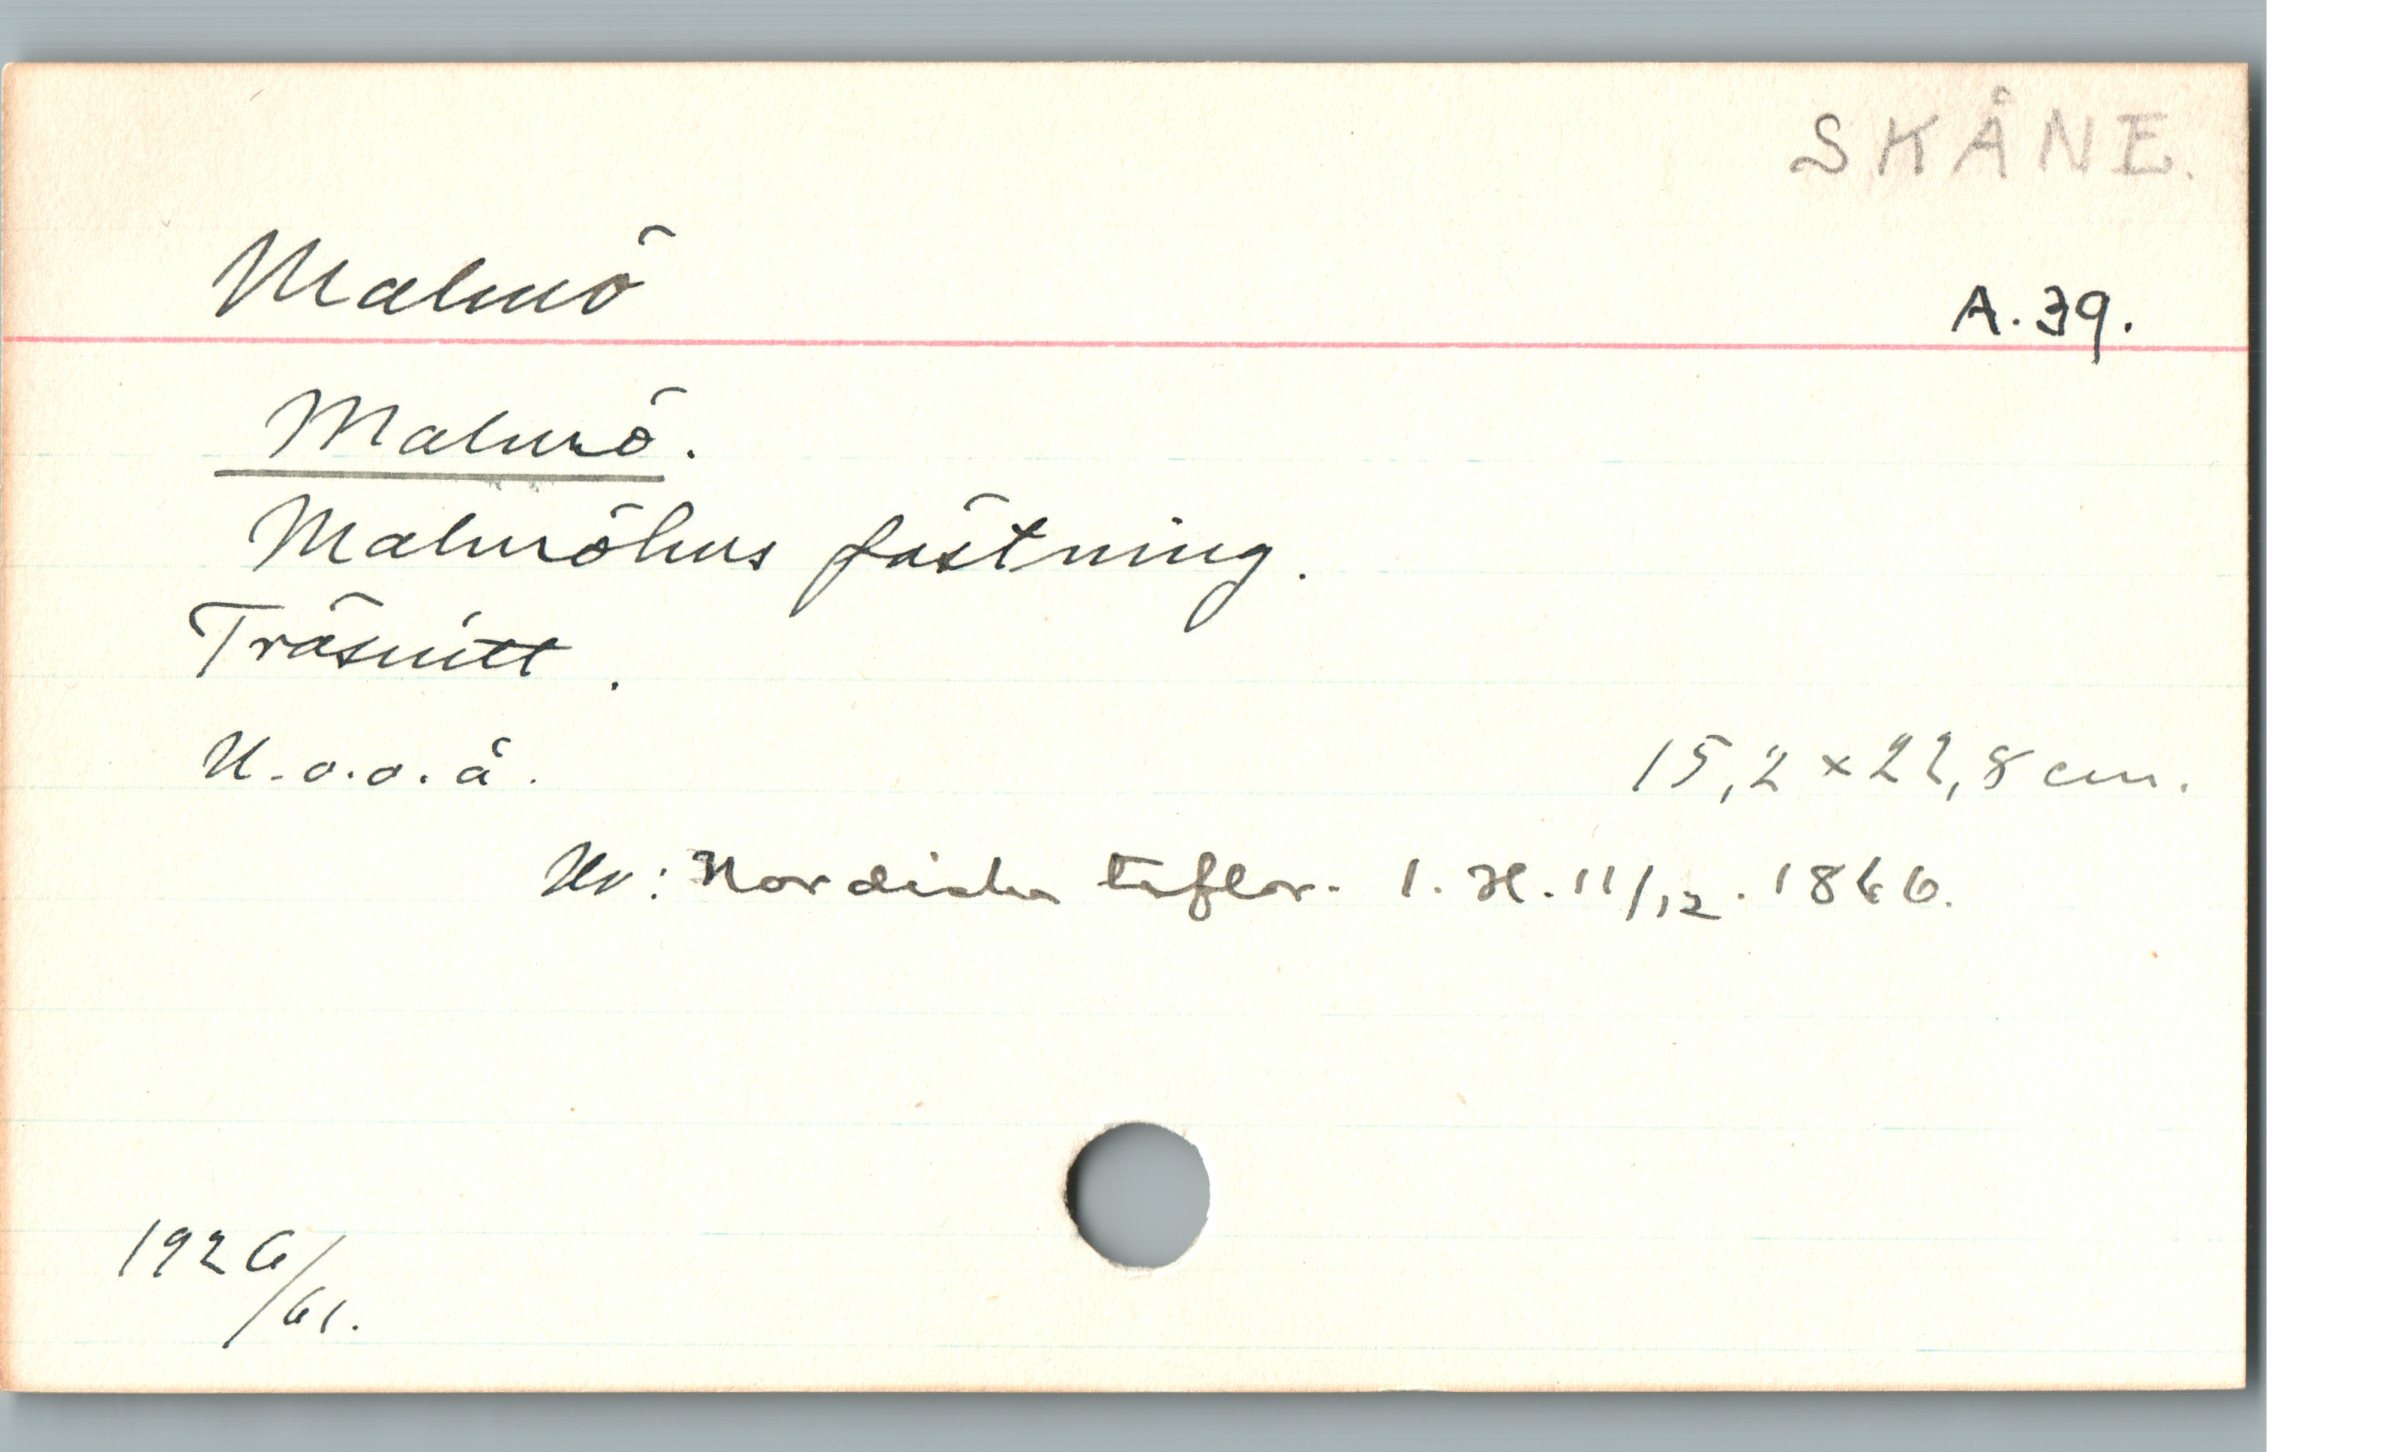 SKÅNE.
Malmö
A. 39.
Malmö.
Malmöhus fästning.
Träsnitt.
U. o. o. å.
15,2 × 22,8 cm.
Ur: Nordiska taflor. 1. H. 11/12. 1866.
1926/61.